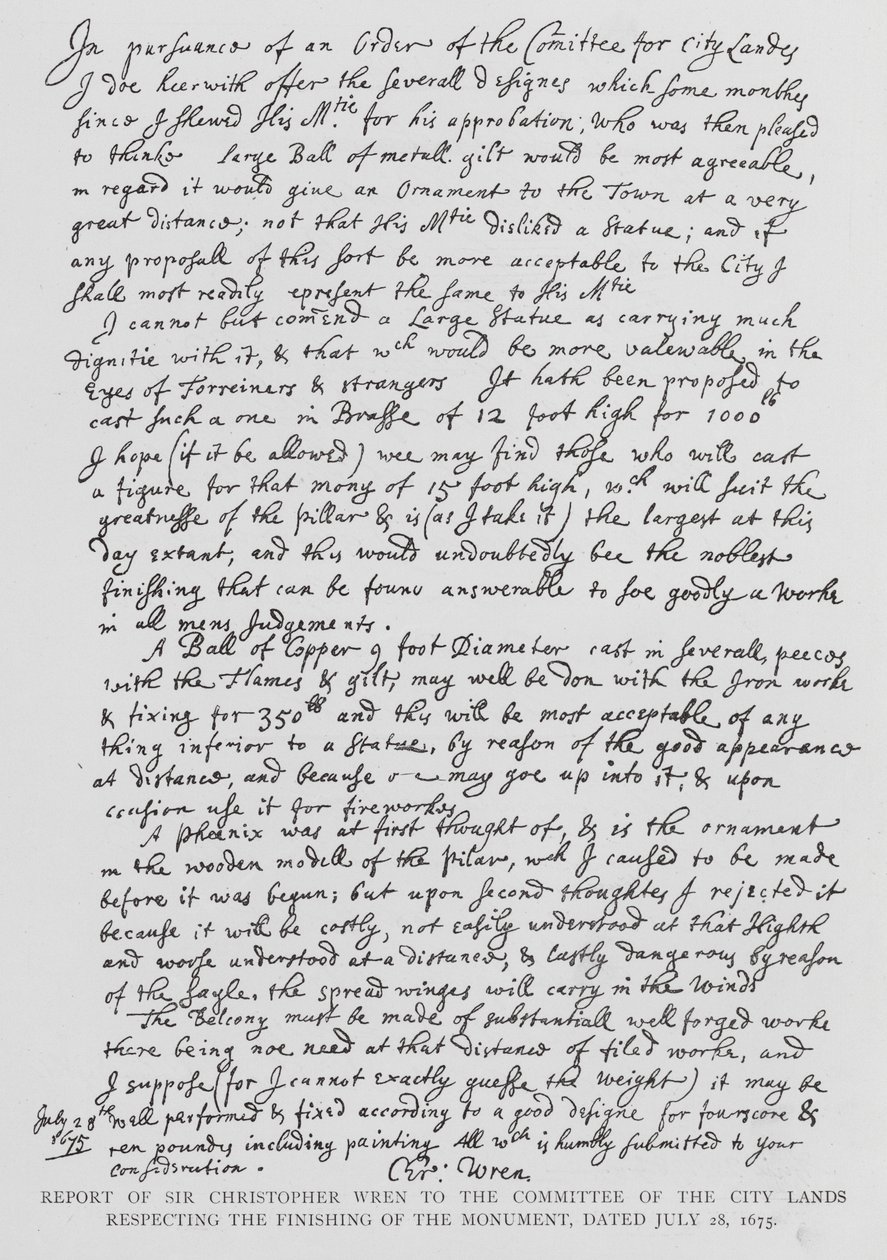 In pursuance of an Order of the Comittee for City Landes
I doe heerwith offer the severall designes which some monthes
since I shewed His M.tie for his approbation, who was then pleased
to thinke large Ball of metall gilt would be most agreeable,
in regard it would give an Ornament to the Town at a very
great distance; not that His Mtie disliked a Statue; and if
any proposall of this sort be more acceptable to the City I
shall most readily epresent the same to His Mtie
I cannot but comend a Large Statue as carrying much
dignitie with it, & that wch would be more valewable in the
Eyes of Forreiners & strangers It hath been proposed to
cast such a one in Brasse of 12 foot high for 1000lb
I hope (if it be allowed) wee may find those who will cast
a figure for that mony of 15 foot high, w.ch will suit the
greatnesse of the pillar & is (as I take it) the largest at this
day extant; and this would undoubtedly bee the noblest
finishing that can be found answerable to soe goodly a worke
in all mens Judgements.
A Ball of Copper 9 foot Diameter cast in severall peeces
with the Flames & gilt, may well be don with the Iron worke
& fixing for 350lb and this will be most acceptable of any
thing inferior to a Statue, by reason of the good appearance
at distance, and because may goe up into it; & upon
ccasion use it for fireworkes
A phœnix was at first thought of, & is the ornament
in the wooden modell of the pilar, wch I caused to be made
before it was begun; but upon second thoughtes I rejected it
because it will be costly, not easily understood at that Highth
and worse understood at a distance, & lastly dangerous by reason
of the sayle, the spread winges will carry in the winds
The Belcony must be made of substantiall well forged worke
there being noe need at that distance of filed worke, and
I suppose (for I cannot exactly guesse the weight) it may be
well performed & fixed according to a good designe for fourscore &
ten poundes including painting All wch is humbly submitted to your
consideration.
July 28th
1675
Chr: Wren.
REPORT OF SIR CHRISTOPHER WREN TO THE COMMITTEE OF THE CITY LANDS
RESPECTING THE FINISHING OF THE MONUMENT, DATED JULY 28, 1675.